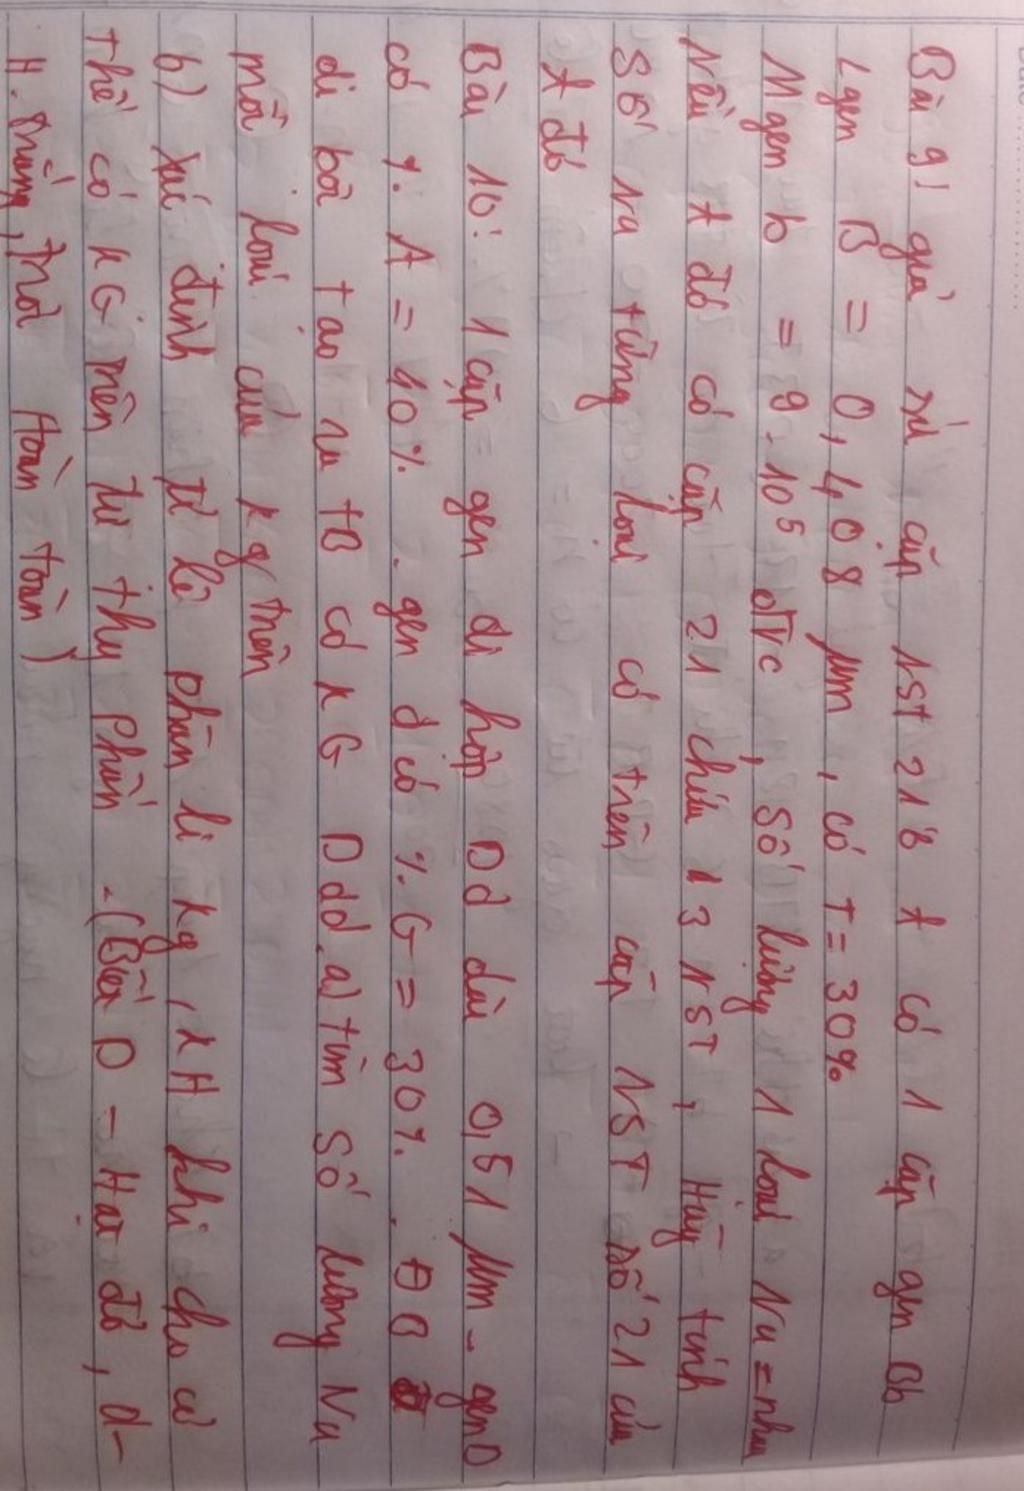 Bài 9! giả sử cặp NST 21 ở t có 1 cặp gen Bb
Lgen B = 0,408 µm, có T = 30%
M gen b = 9.10⁵ đvc, số lượng 1 loại Nu = nhau
Nếu t đó có cặp 21 chứa 3 NST, Hãy tính
Số nu từng loại có trên cặp NST số 21 của
t đó
Bài 10: 1 cặp gen dị hợp Dd dài 0,51 µm - gen D
có %. A = 40%. gen d có %. G = 30%. ĐB
dị bội tạo ra tB có KG Ddd. a) tìm số lượng Nu
mỗi loại của kg trên
b) xác định tỉ lệ phân li kg, KH khi cho cơ
thể có KG trên tự thụ phấn. (Biết D - Hạt đỏ, d-
H. trắng, trội hoàn toàn)